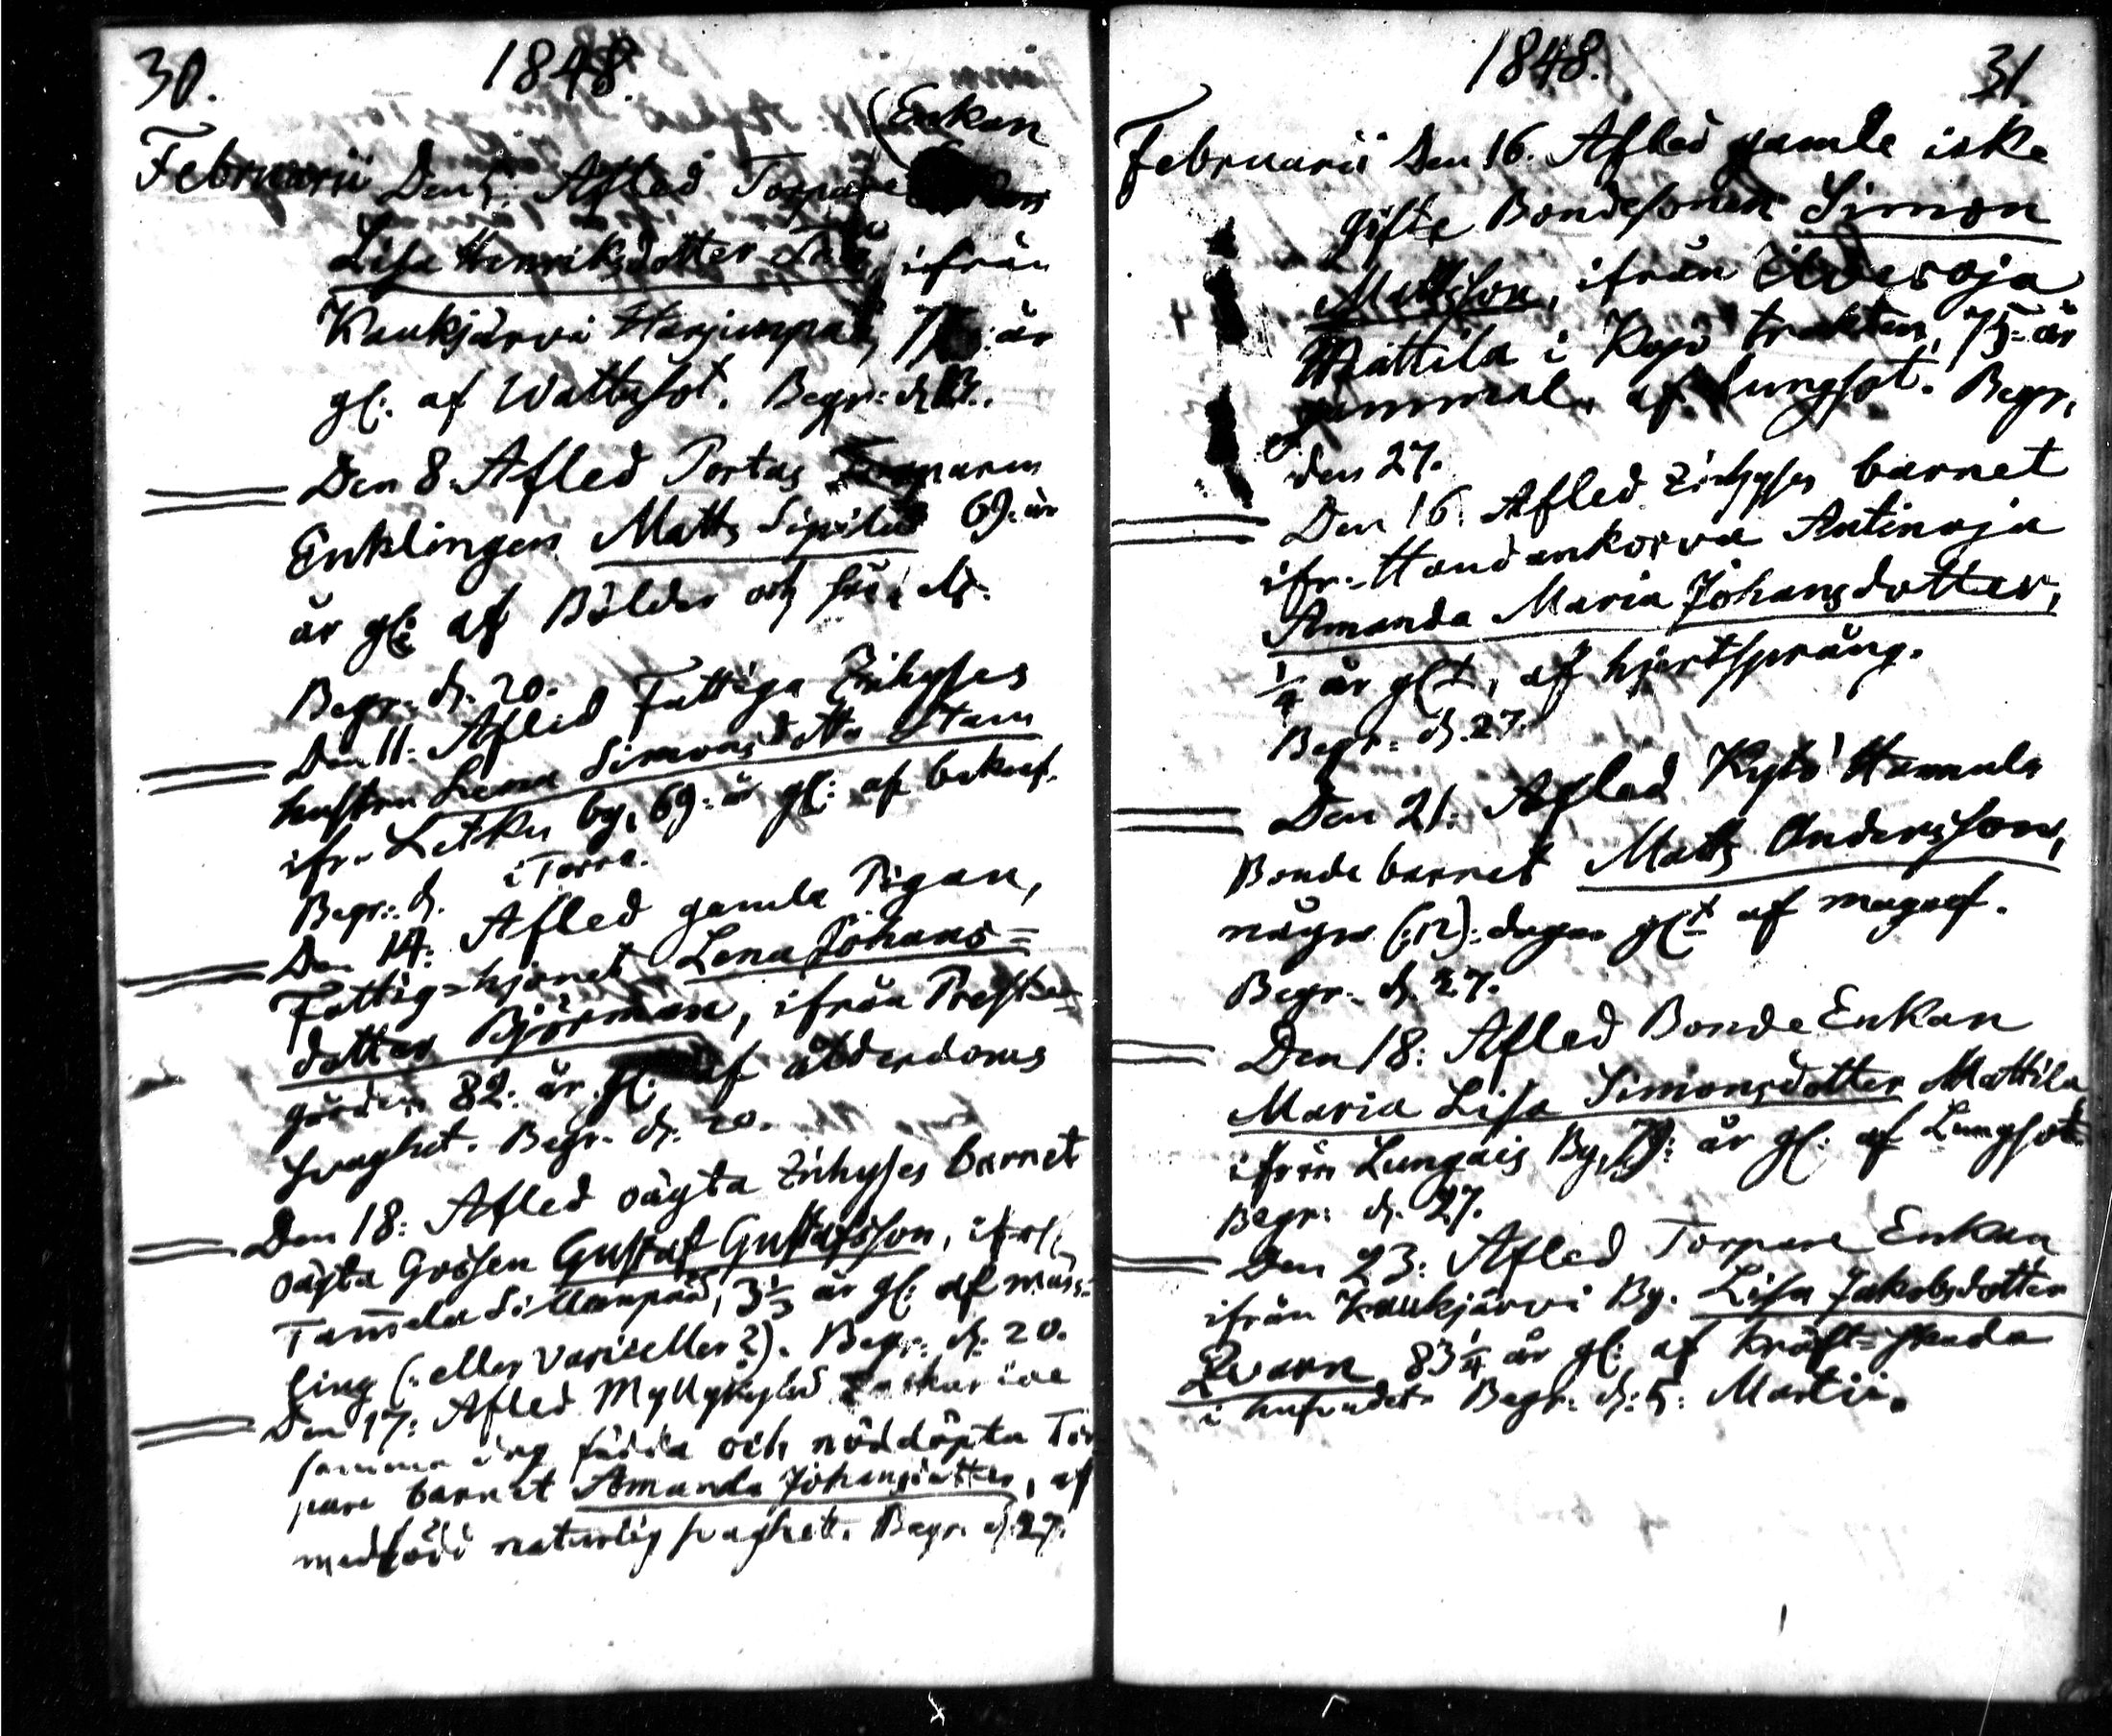 30. 1848.
(Enkan
Februarii Den 5. Afled Torpare
Lisa Henriksdotter ifrån
Kaukjärvi Harjunpää, år
gl: af Wattusot. Begr: d. 13.
Den 8. Afled Portas
Enklingen Matts Sipilä 69: år
år gl: af Bölder och
Begr. d. 20.
Den 11: Afled Fattiga Inhyses
hustru Lena Simonsdotter Stam
ifr. Letku by, 69: år gl: af
Begr: d. i Torra.
Den 14: Afled gamla Pigan,
Fattig=hjonet Lena Johans=
dotter Björman, ifrån Prest
gården 82: år gl: af ålderdoms
svaghet. Begr. d. 20.
Den 18: Afled oägta Inhyses barnet
oägta Gossen Gustaf Gustafsson, ifrån
Tammela Sillanpää, 3 1/3 år gl: af mäss=
ling (: eller Variceller?). Begr: d. 20.
Den 17: Afled Myllykylä
samma dag födda och nöddöpta Tor
pare barnet Amanda Johansdotter, af
medfödd naturlig svaghet. Begr. d. 27.
1848. 31.
Februarii Den 16. Afled gamle icke
gifte Bondesonen Simon
Mattsson, ifrån
Mattila i Kojo trakten, 75: år
gammal, af Lungsot. Begr.
den 27.
Den 16. Afled Inhyses barnet
ifr. Haudankorva Antinoja
Amanda Maria Johansdotter,
1/4 år glt, af hjertsprång.
Begr: d. 27.
Den 21: Afled Kytö Hamula
Bonde barnet Matts Andersson,
några (:12): dagar glt af magref.
Begr. d. 27.
Den 18: Afled Bonde Enkan
Maria Lisa Simonsdotter Mattila
ifrån Lungais By, 79: år gl: af Lungsot.
Begr: d. 27.
Den 23: Afled Torpare Enkan
ifrån Kaukjärvi By. Lisa Jakobsdotter
Qvarn 83 1/4 år gl: af kräft=skada
i hufvudet. Begr: d: 5: Martii.